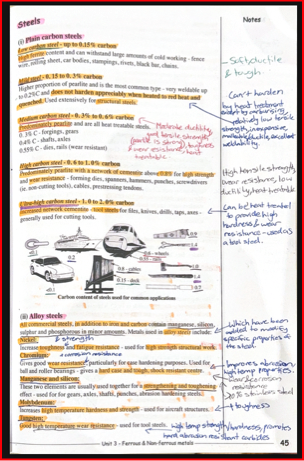 Steels
Notes
(i) Plain carbon steels
Low carbon steel - up to 0.15% carbon
High ferrite content and can withstand large amounts of cold working - fence
wire, rolling sheet, car bodies, stampings, rivets, black bar, chains.
- Soft, ductile
& tough.
Mild steel - 0.15 to 0.3% carbon
Higher proportion of pearlite and is the most common type - very weldable up
to 0.25% C and does not harden appreciably when heated to red heat and
quenched. Used extensively for structural steels.
Can't harden
by heat treatment
weldability.
Medium carbon steel - 0.3% to 0.6% carbon
Predominantly pearlite and are all heat treatable steels.
0.3% C - forgings, gears
0.4% C - shafts, axles
0.55% C - dies, rails (wear resistant)
Moderate ductility,
High carbon steel - 0.6 to 1.0% carbon
Predominantly pearlite with a network of cementite above 0.8% for high strength
and wear resistance - forming dies, spanners, hammers, punches, screwdrivers
(ie. non-cutting tools), cables, prestressing tendons.
High tensile strength,
wear resistance, low
Ultra-high carbon steel - 1.0 to 2.0% carbon
Increased network cementite - tool steels for files, knives, drills, taps, axes -
generally used for cutting tools.
Can be heat treated
to provide high
hardness & wear
resistance - used as
a tool steel.
Carbon content of steel used for common applications
(ii) Alloy steels
All commercial steels, in addition to iron and carbon contain manganese, silicon,
sulphur and phosphorous in minor amounts. Metals used in alloy steels include:
Which have been
added to modify
specific properties of
the steel.
Nickel:
↑ strength
Increases toughness and fatigue resistance - used for high strength structural work.
Chromium:
+ corrosion resistance
Gives good wear resistance particularly for case hardening purposes. Used for
ball and roller bearings - gives a hard case and tough, shock resistant centre.
Improves abrasion,
high temp properties.
Manganese and silicon:
These two elements are usually used together for a strengthening and toughening
effect - used for gears, axles, shafts, punches, abrasion resistant castings.
Molybdenum:
Increases high temperature hardness and strength - used for aircraft structures.
+ toughness
Tungsten:
Good high temperature wear resistance - used for tool steels.
High temp strength/hardness, promotes
hard abrasion resistant carbides
Unit 3 - Ferrous & Non-ferrous metals
45